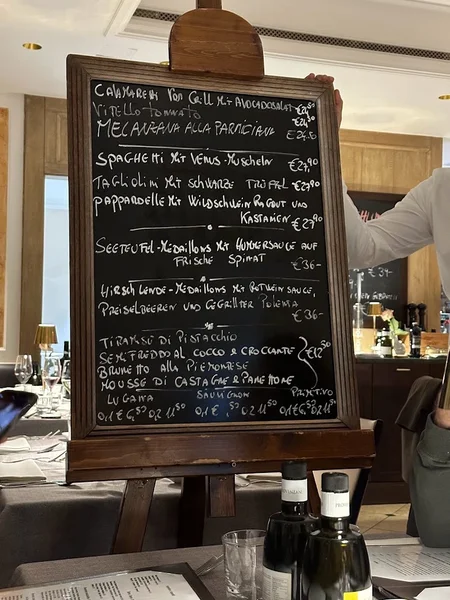 CALAMARETTI VON GRILL MIT AVOCADOSALAT €24,50
VITELLO TONNATO €24,50
MELANZANA ALLA PARMIGIANA €24,50
SPAGHETTI MIT VENUS-MUSCHELN €27,90
TAGLIOLINI MIT SCHWARZE TRÜFFEL €29,90
PAPPARDELLE MIT WILDSCHWEIN RAGOUT UND
KASTANIEN €27,90
SEETEUFEL-MEDAILLONS MIT HUMMERSAUCE AUF
FRISCHE SPINAT €36-
HIRSCHLENDE-MEDAILLONS MIT ROTWEINSAUCE,
PREISELBEEREN UND GEGRILLTER POLENTA
€36-
TIRAMISU DI PISTACCHIO
SEMIFREDDO AL COCCO E CROCCANTE €12,50
BRUNETTO ALLA PIEMONTESE
MOUSSE DI CASTAGNE & PANETTONE
LUGANA SAUVIGNON PRIMITIVO
0,1 € 6,50 0,2 11,50 0,1 € 6,50 0,2 11,50 0,1 € 6,50 0,2 11,50
€34-